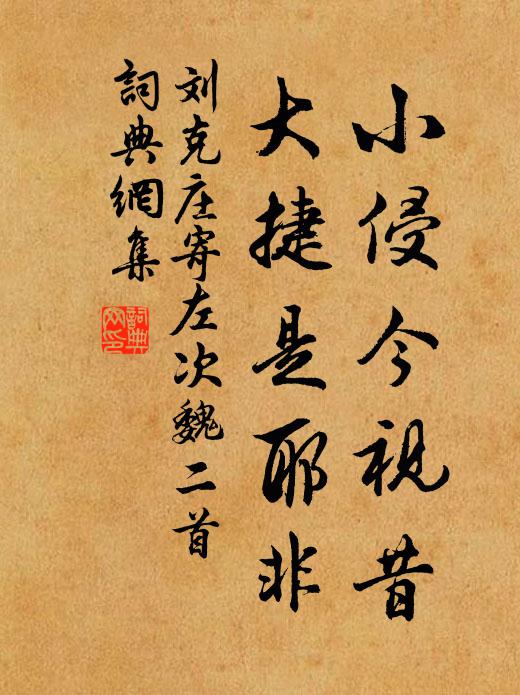 小侵今视昔
大捷是耶非
刘克庄寄左次魏二首
词典網集
詞典網印